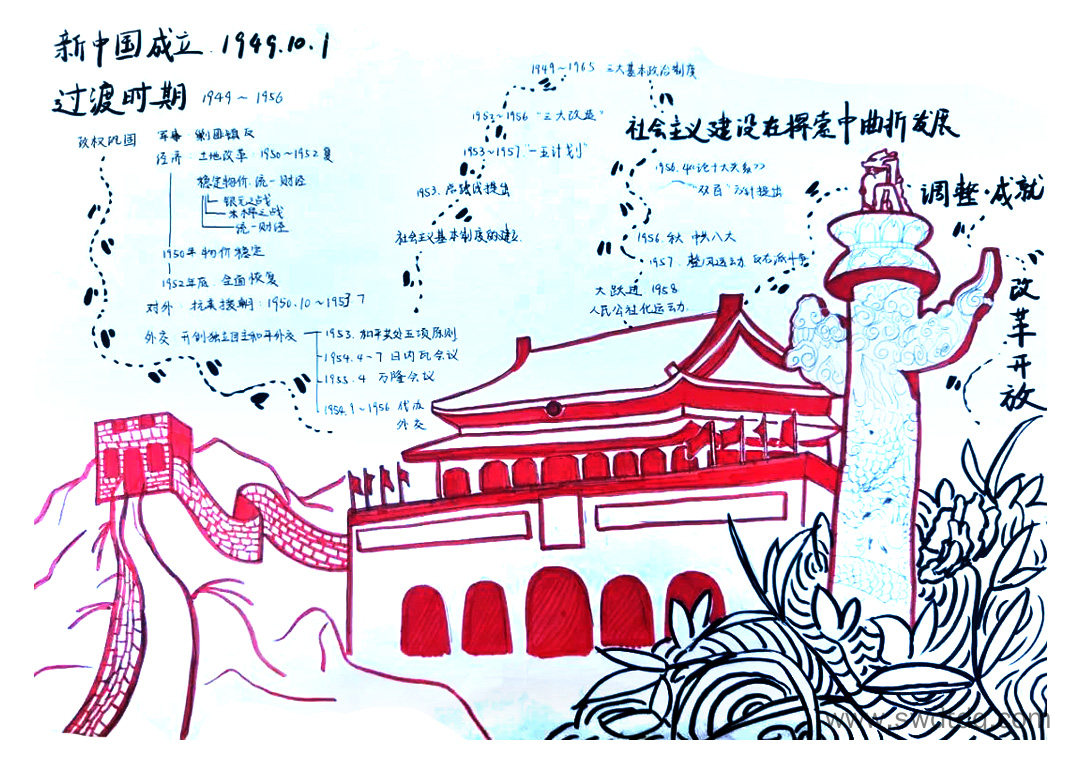 新中国成立 1949.10.1
过渡时期 1949～1956
政权巩固
军事：剿匪镇反
经济：土地改革：1950～1952夏
稳定物价.统一财经
银元之战
米棉之战
统一财经
1950年 物价稳定
1952年底 全面恢复
对外：抗美援朝：1950.10～1953 7
外交 开创独立自主和平外交
1953. 和平共处五项原则
1954.4~7 日内瓦会议
1955.4 万隆会议
1956
外交
1949～1965 三大基本政治制度
1953~1956 "三大改造"
1953～1957 "一五计划"
1953. 总路线提出
社会主义基本制度的建立
社会主义建设在探索中曲折发展
1956.4《论十大关系》
"双百"方针提出
1956.秋 中共八大
1957. 整风运动
大跃进 1958
人民公社化运动
调整·成就
改革开放